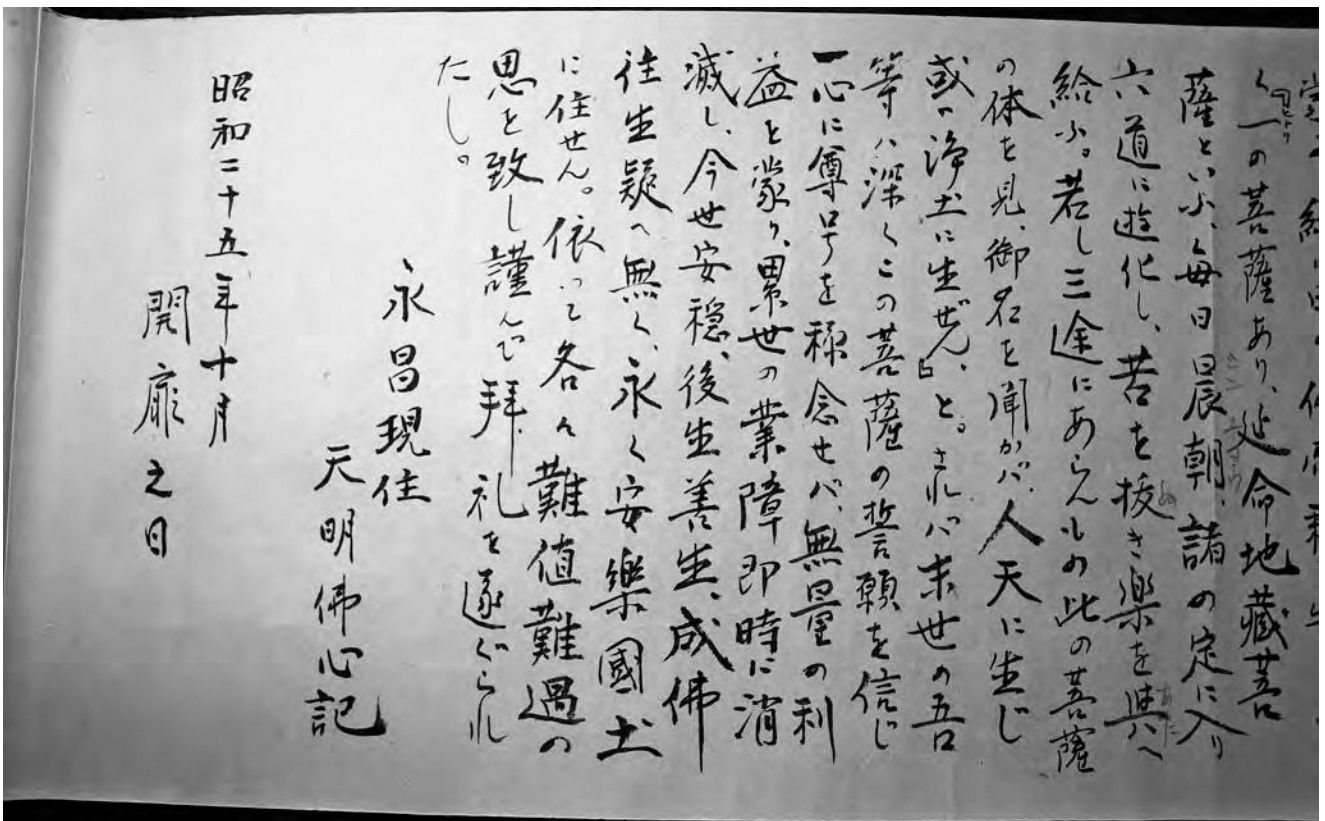 一の菩薩あり、延命地蔵菩
薩といふ、毎日晨朝、諸の定に入り
六道に遊化し、苦を抜き楽を與へ
給ふ。若し三途にあらんもの此の菩薩
の体を見、御名を聞かバ、人天に生じ
或ハ浄土に生ぜん、と。されバ末世の吾
等ハ深くこの菩薩の誓願を信じ
一心に尊号を称念せバ、無量の利
益を蒙り、累世の業障即時に消
滅し、今世安穏、後生善生、成佛
往生疑ヘ無く、永く安樂國土
に住せん。依って各々難値難遇の
思を致し謹んで拝礼を遂ぐられ
たし。
永昌現住
天明佛心記
昭和二十五年十月
開扉之日